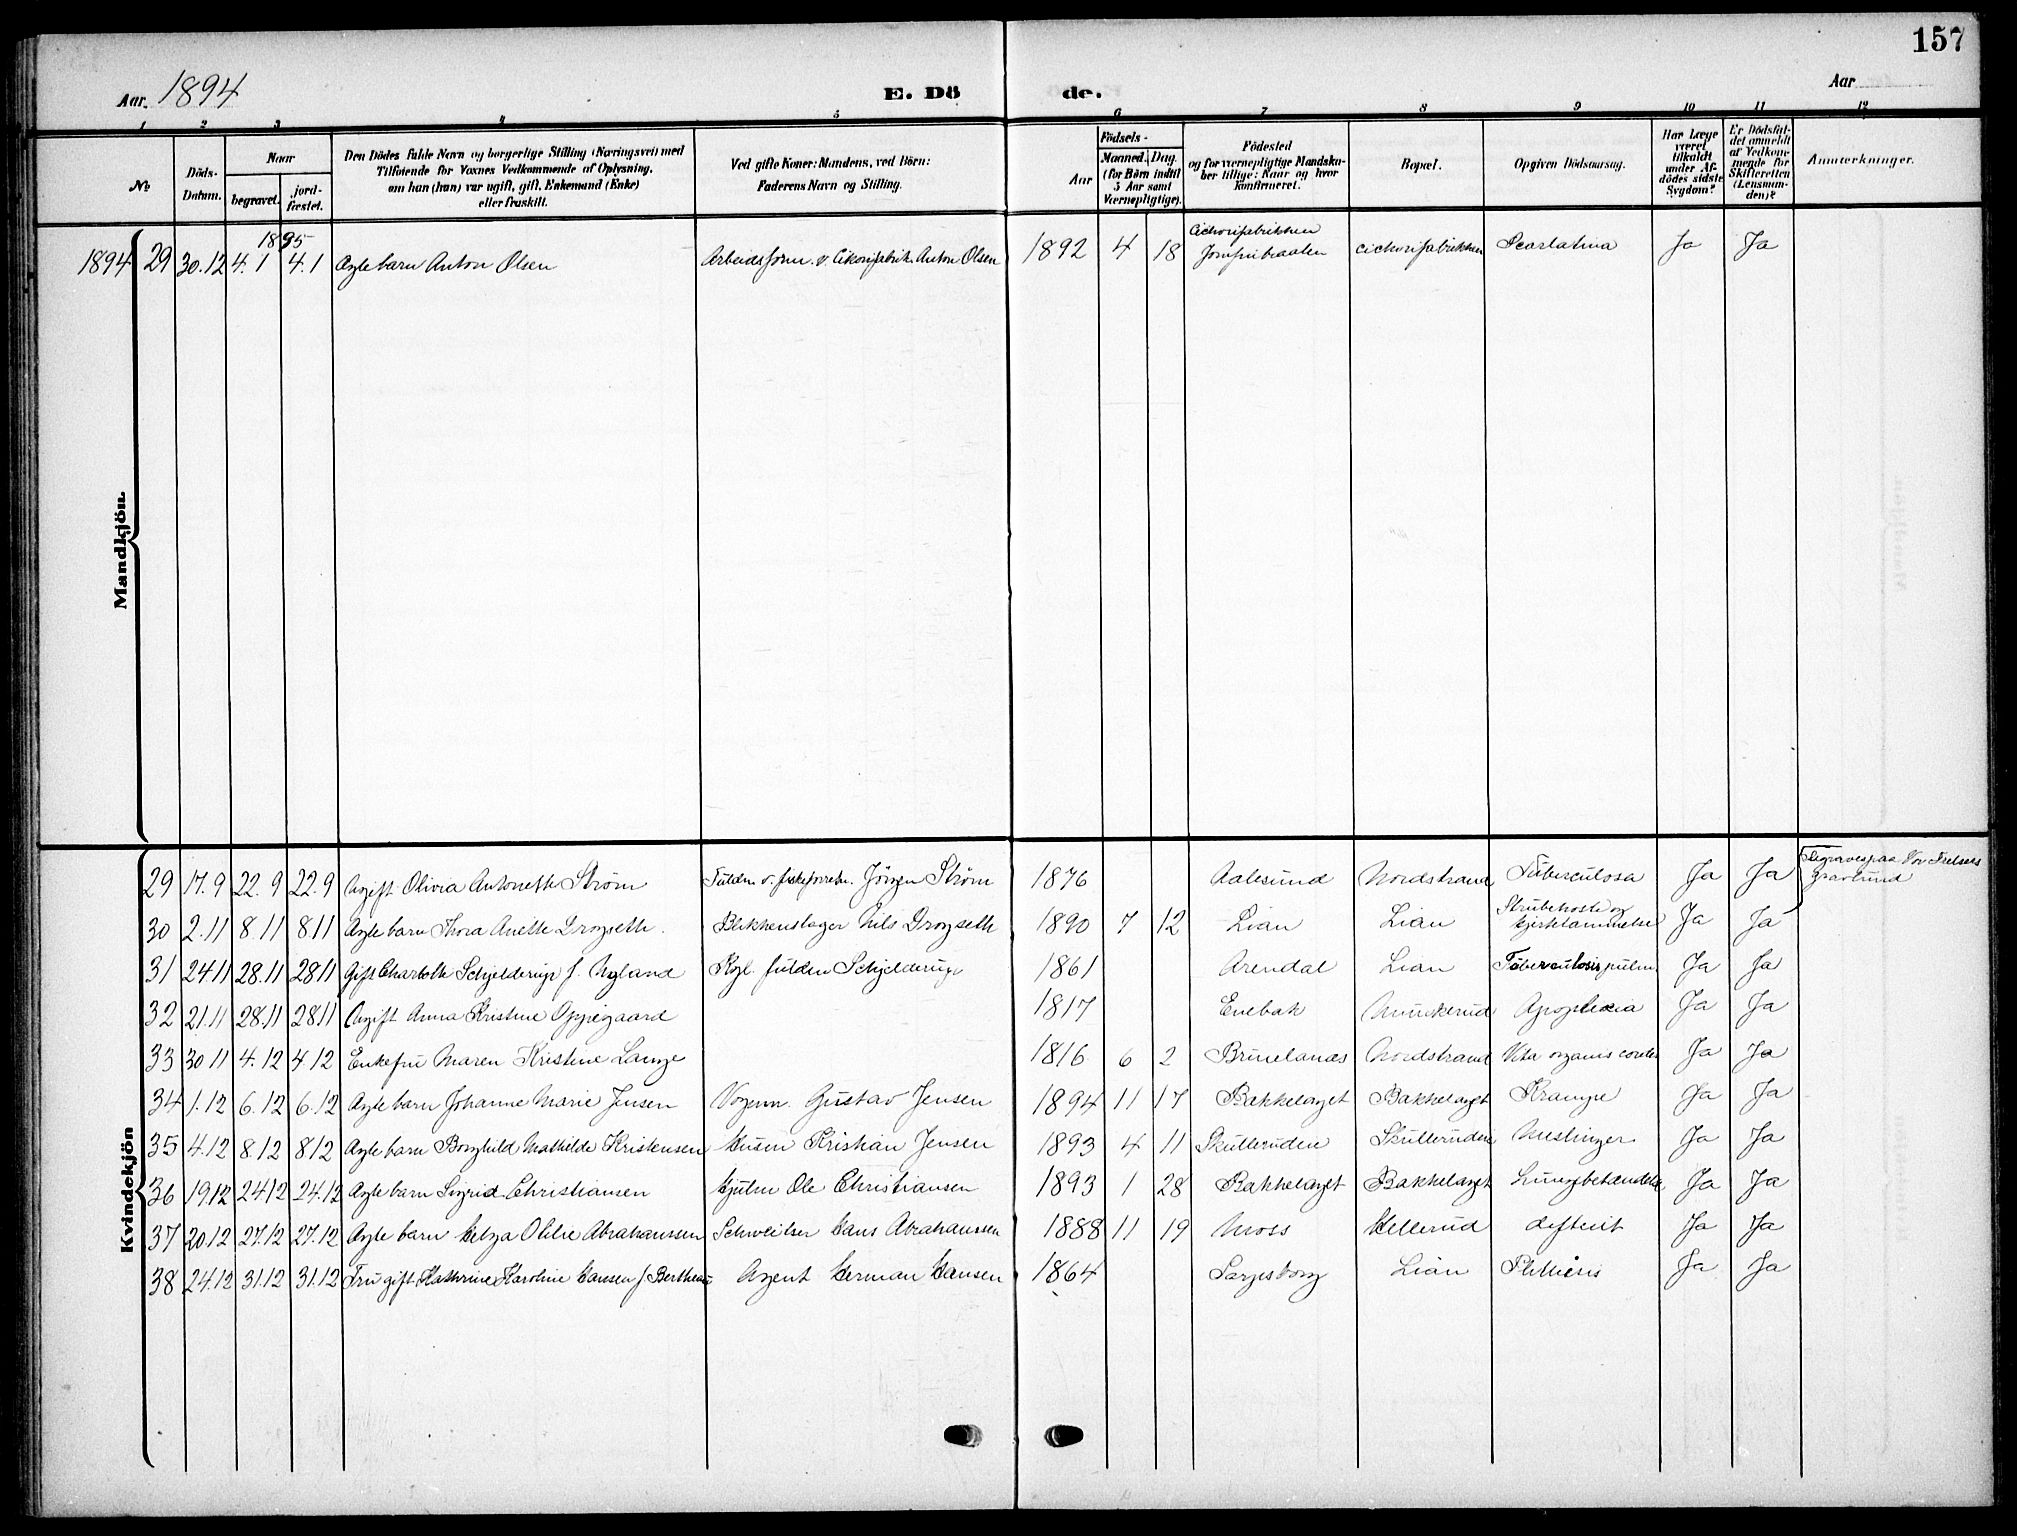 157
Aar. 1894
E. Dö de.
Aar
1 2 3 4 5 6 7 8 9 10 11 12
No
Döds-Datum.
Naar
begravet.
jord-fæstet.
Den Dödes fulde Navn og borgerlige Stilling (Næringsvei) med
Tilföiende for Voxnes Vedkommende af Oplysning,
om han (hun) var ugift, gift, Enkemand (Enke)
eller fraskilt.
Ved gifte Koner: Mandens, ved Börn:
Faderens Navn og Stilling.
Födsels-
Aar
Maaned. Dag.
(for Börn indtil
5 Aar samt
Værnepligtige).
Födested
og for værnepligtige Mandska-
ber tillige: Naar og hvor
konfirmeret.
Bopæl.
Opgiven Dödsaarsag.
Har Læge
været
tilkaldt
under Af-
dödes sidste
Sygdom?
Er Dödsfal-
det anmeldt
af Vedkom-
mende for
Skifteretten
(Lensman-
den)?
Anmærkninger.
Mandkjön.
1895
1894 29 30.12 4.1 4.1 Ægte barn Anton Olsen Arbeidsform. v. Cikorifabrik. Anton Olsen 1892 4 18 Cichorifabrikken Jomfrubraaten Cichorifabrikken Scarlatina Ja Ja
Kvindekjön
29 17.9 22.9 22.9 Ugift Olivia Antonette Strøm Jørgen Strøm 1876 Aalesund Nordstrand Tuberculosa Ja Ja Begraves paa Vor Frelsers Gravlund
30 2.11 8.11 8.11 Ægte barn Thora Anette Drogseth. Blikkenslager Nils Drogseth 1890 7 12 Lian Lian Strubehoste og Ja Ja
31 24.11 28.11 28.11 Gift Charlotte Schjelderup f. Nyland Kgl. fuldm Schjelderup 1861 Arendal Lian Tuberculosis pulm Ja Ja
32 21.11 28.11 28.11 Ugift Anna Kristine Oppegaard 1817 Enebak Munkerud Apoplexia Ja Ja
33 30.11 4.12 4.12 Enkefru Maren Kristine Lange 1816 6 2 Brunlanæs Nordstrand Vita organis cordis Ja Ja
34 1.12 6.12 6.12 Ægte barn Johanne Marie Jensen Vognm. Gustav Jensen 1894 11 17 Bakkelaget Bakkelaget Krampe Ja Ja
35 4.12 8.12 8.12 Ægte barn Borghild Mathilde Kristensen Husm Kristian Jensen 1893 4 11 Skullerudeie Skullerudeie Meslinger Ja Ja
36 19.12 24.12 24.12 Ægte barn Sigrid Christiansen Hjulm Ole Christiansen 1893 1 28 Bakkelaget Bakkelaget Lungebetændelse Ja Ja
37 20.12 27.12 27.12 Ægte barn Helga Otilie Abrahamsen Schweitser Hans Abrahamsen 1888 11 19 Moss Hellerud difterit Ja Ja
38 24.12 31.12 31.12 Fru gift Kathrine Karoline Hansen f. Bertheau Agent Herman Hansen 1864 Sarpsborg Lian Phthisis Ja Ja